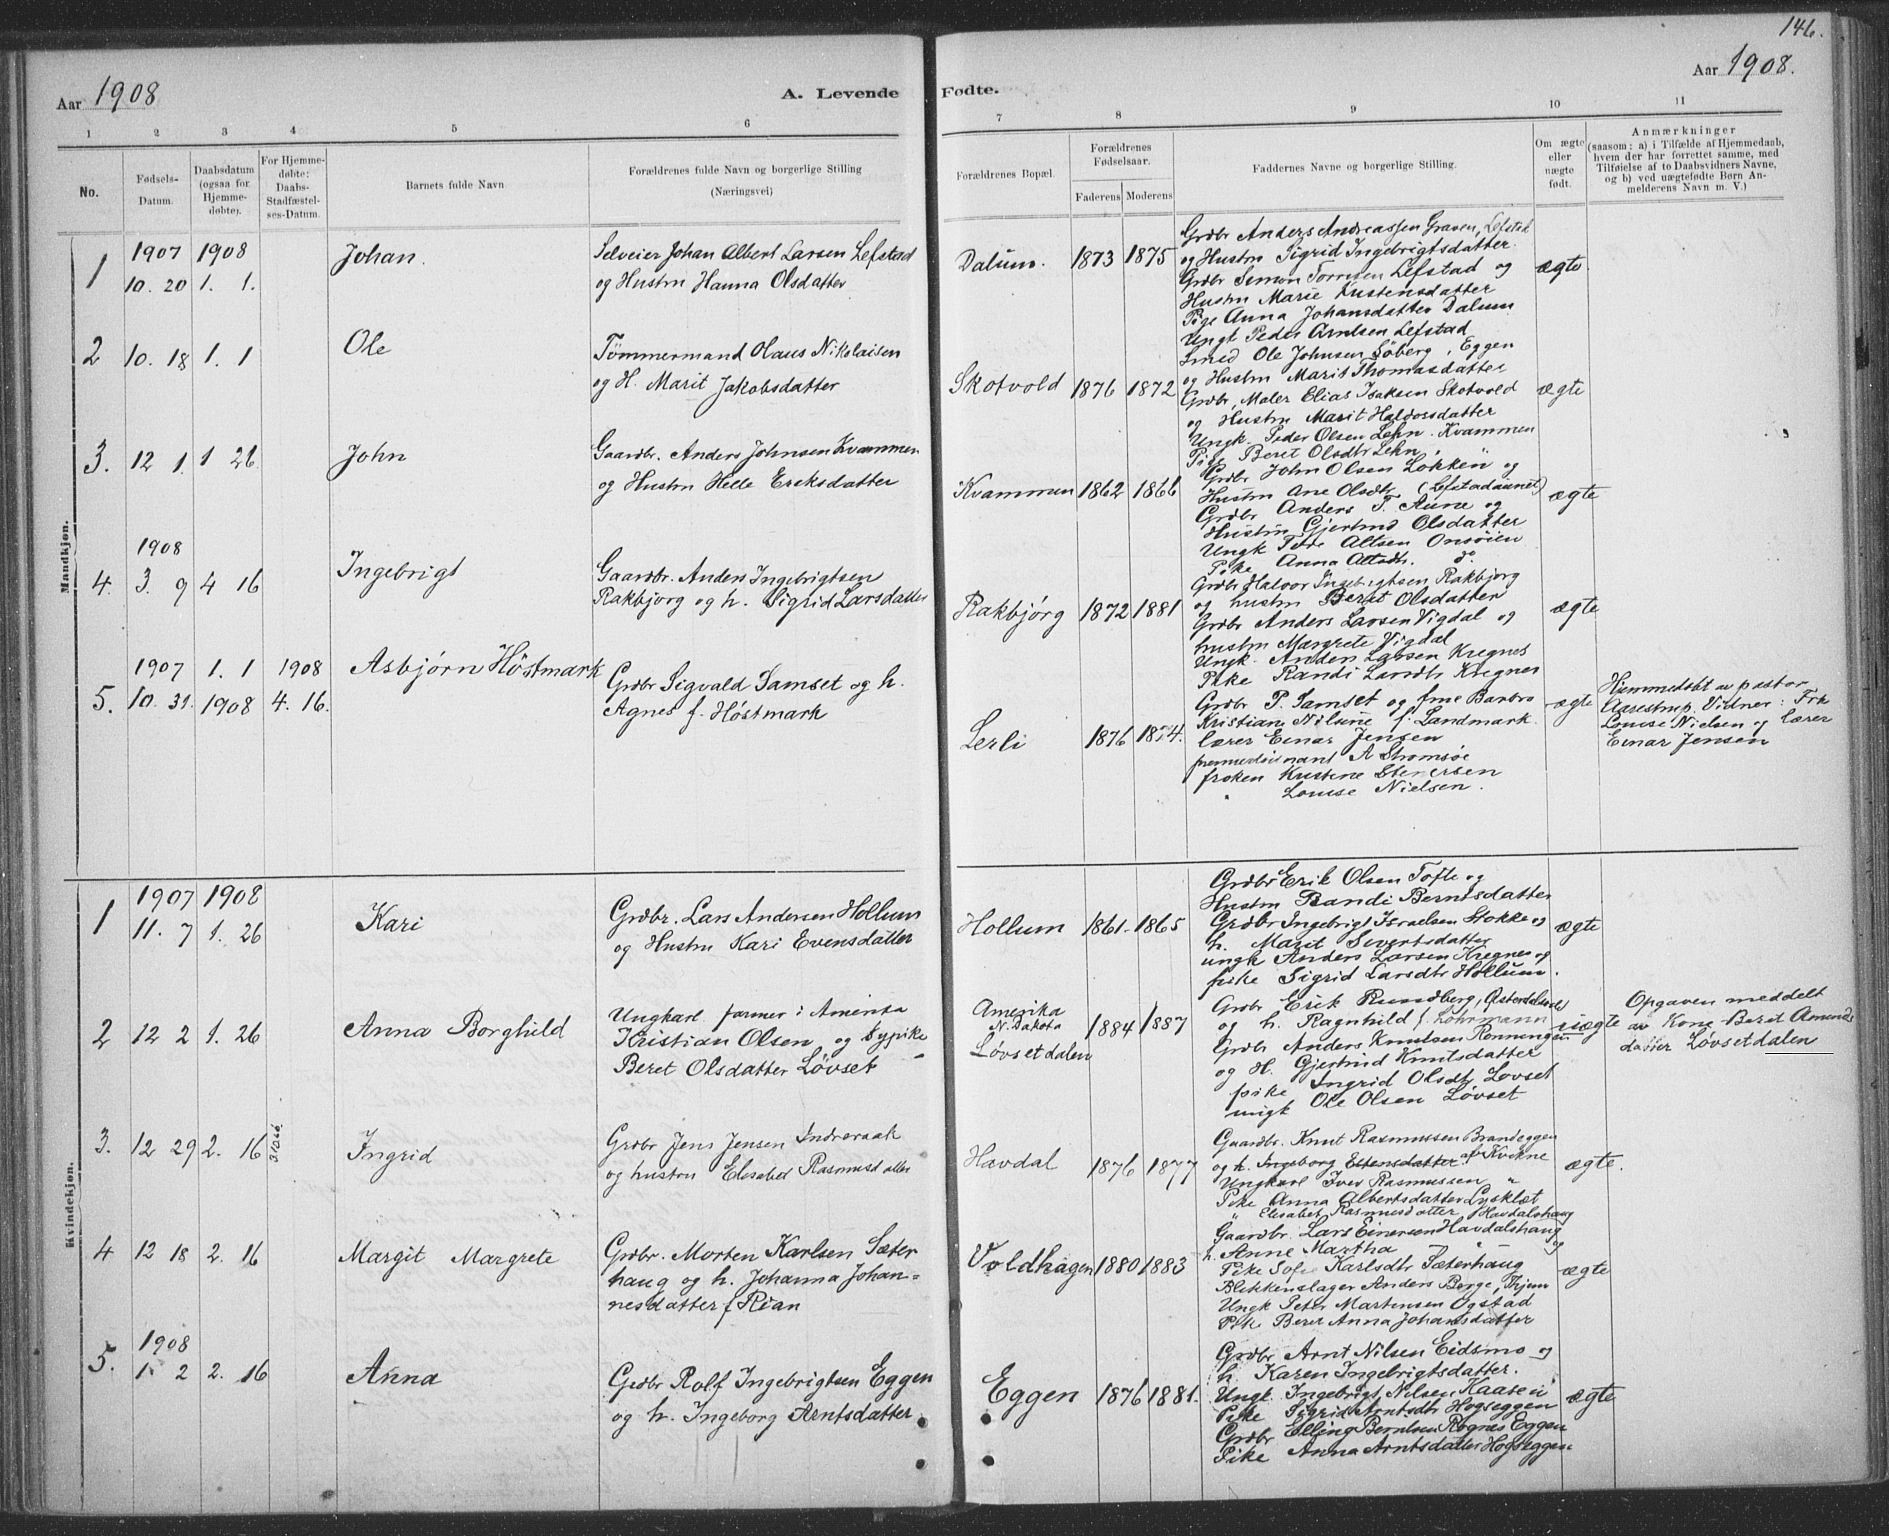 146.
Aar 1908
A. Levende Fødte.
Aar 1908.
1 2 3 4 5 6 7 8 9 10 11
No.
Fødsels-
Datum.
Daabsdatum
(ogsaa for
Hjemme-
døbte).
For Hjemme-
døbte:
Daabs-
Stadfæstel-
ses-Datum.
Barnets fulde Navn
Forældrenes fulde Navn og borgerlige Stilling
(Næringsvei)
Forældrenes Bopæl.
Forældrenes
Fødselsaar.
Faderens Moderens
Faddernes Navne og borgerlige Stilling.
Om ægte
eller
uægte
født.
Anmærkninger
(saasom: a) i Tilfælde af Hjemmedaab,
hvem der har forrettet samme, med
Tilføielse af to Daabsvidners Navne,
og b) ved uægtefødte Børn An-
melderens Navn m. V.)
Mandkjøn.
1
1907 1908
10. 20 1. 1.
Johan.
Selveier Johan Albert Larsen Lefstad
og Hustru Hanna Olsdatter
Dalum. 1873 1875
Grdbr Anders Andreassen Graven, Lefstad
og Hustru Sigrid Ingebrigtsdatter
Grdbr Simon Lefstad og
Hustru Marie
Pige Anna Johansdatter Dalum
Ungk Peder Arntsen Lefstad
ægte
2
10. 18 1. 1
Ole
Tømmermand Olaus Nikolaisen
og H. Marit Jakobsdatter
Skotvold 1876 1872
Smed Ole Johnsen Söberg, Eggen
og Hustru Marit Thomasdatter
Grdbr, Maler Elias Isaksen Skotvold
og Hustru Marit Haldosdatter
Ungk. Peder Olsen Lehn. Kvammen
Pige Beret Olsdtr Lehn "
ægte
3.
12 1 1 26
John
Gaardbr. Anders Johnsen Kvammen
og Hustru Helle Eriksdatter
Kvammen 1862 1866
Grdbr John Olsen Løkken og
Hustru Ane Olsdtr (Lefstadaunet)
Grdbr Anders T. Aune og
Hustru Gjertrud Olsdatter
Ungk Peder Altsen Onsøien
Pike Anna Altsdtr. do
ægte
4.
1908
3. 9 4 16
Ingebrigt
Gaardbr. Anders Ingebrigtsen
Rakbjørg og h. Sigrid Larsdatter
Rakbjørg 1872 1881
Grdbr Halvor Ingebrigtsen Rakbjørg
og hustru Beret Olsdatter
Grdbr Anders Larsen Vigdal og
hustru Margrete Vigdal
Ungk. Anders Larsen Kregnes
Pike Randi Larsdtr Kregnes
ægte
5.
1907 1. 1 1908
10. 31. 1908 4. 16.
Asbjørn Höstmark
Grdbr Sigvald Samset og h.
Agnes f. Höstmark
Lerli 1876 1874.
Grdbr P. Samset og frue Barbro
Kristiane Nilsine f. Landmark
lærer Einar Jensen
premierløitnant A Stromsøe
frøken Kristine Stenersen
" Louise Nielsen.
ægte
Hjemmedøbt av pastor
Aarestrup, Vidner: Frk
Louise Nielsen og lærer
Einar Jensen
Kvindekjøn.
1
1907 1908
11. 7 1. 26
Kari
Grdbr. Lars Andersen Hollum
og Hustru Kari Evensdatter
Hollum 1861. 1865
Grdbr Erik Olsen Tofte og
Hustru Randi Berntsdatter
Grdbr Ingebrigt Israelsen Stokke og
h. Marit Sivertsdatter
ungk Anders Larsen Kregnes og
pike Sigrid Larsdtr Hollum.
ægte
2
12 2 1. 26
Anna Borghild
Ungkarl farmer i Amerika
Kristian Olsen og sypike
Beret Olsdatter Løvset
Amerika
N. Dakota
Løvsetdalen
1884 1887
Grdbr Erik Rundberg,
og h. Ragnhild f. Lohrmann
Grdbr Anders Knutsen Rønningen
og H. Gjertrud Knutsdatter
pike Ingrid Olsdtr Løvset
ungk Ole Olsen Løvset
uægte
Opgaven meddelt
av Kone Beret Amunds
datter Løvsetdalen
3.
12 29 2. 16
Ingrid
Grdbr Jens Jensen
og hustru Elisabet Rasmusdatter
Havdal 1876 1877
Gaardbr. Knut Rasmussen Brandeggen
og h. Ingeborg Estensdatter af Kvikne
Ungkarl Iver Rasmussen "
Pike Anna Albertsdatter Lysklet
" Elisabet Rasmusdatter Havdalshaug
ægte.
4
12 18 2. 16
Margit Margrete
Grdbr. Morten Karlsen Sæter
haug og h. Johanna Johan=
nesdatter f Rian
Voldhagen 1880 1883
Gaardbr. Lars Einersen Havdalshaug og
h. Anne Martha "
Pike Sofie Karlsdtr Sæterhaug
Blikkenslager Anders Berge, Thjem
Ungk Peter Martensen Ogstad
Pike Beret Anna Johansdatter
ægte
5.
1908
1. 2 2. 16
Anna
Grdbr Rolf Ingebrigtsen Eggen
og h. Ingeborg Arntsdatter
Eggen 1876 1881.
Grdbr Arnt Nilsen Eidsmo og
h. Karen Ingebrigtsdatter.
Ungk. Ingebrigt Nilsen Kaasen
Pike Sigrid Arntsdtr Hogseggen
Grdbr Elling Berntsen Rognes Eggen
Pike Anna Arntsdatter Hogseggen
ægte